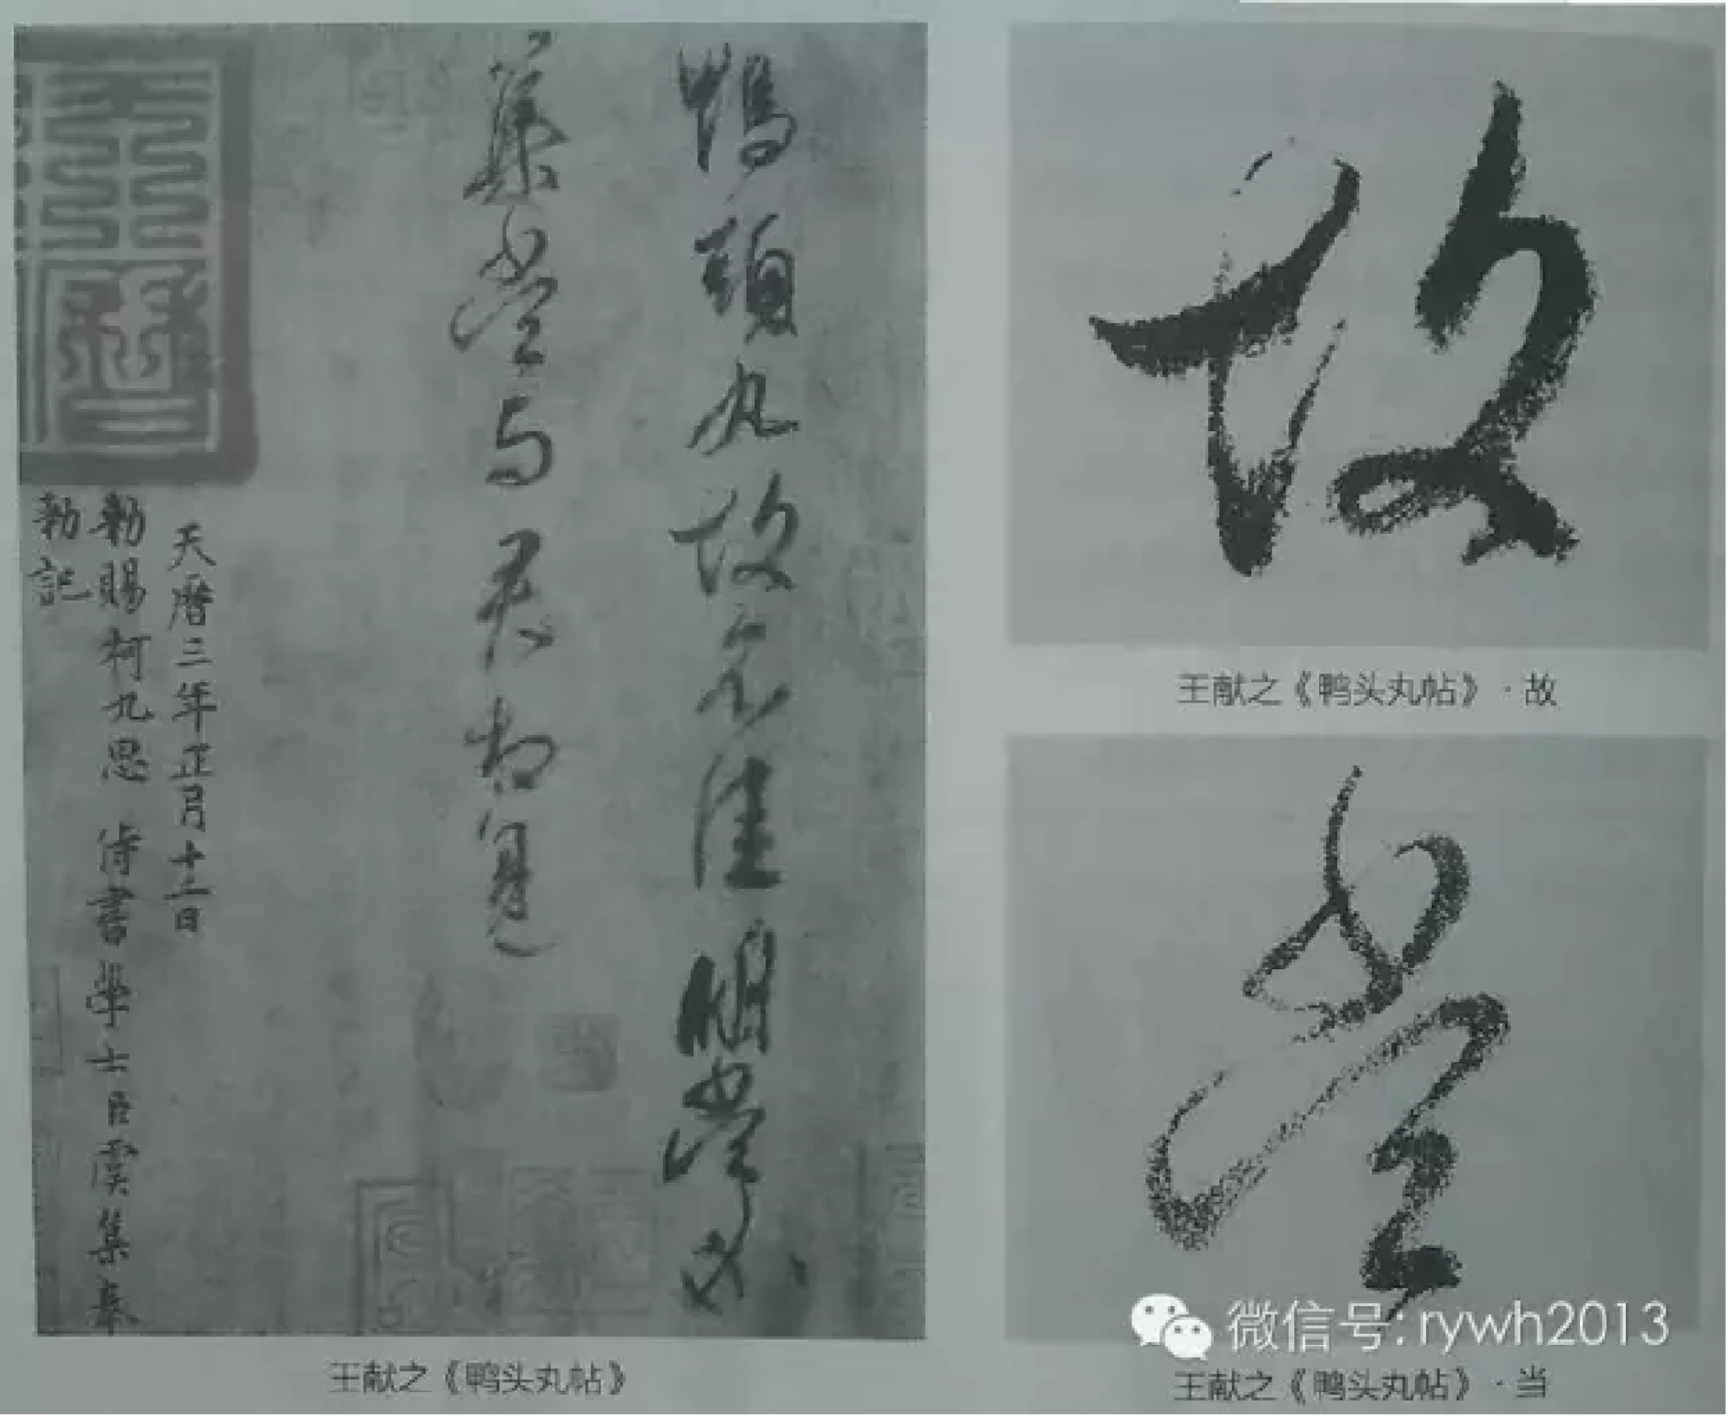 鴨頭丸故不佳明當必
集當与君相見
天暦三年正月十二日
勅賜柯九思侍書學士臣虞集奉
勅記
王献之《鸭头丸帖》
王献之《鸭头丸帖》·故
微信号: rywh2013
王献之《鸭头丸帖》·当